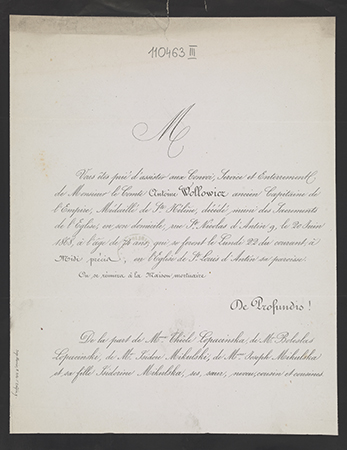 110463 III
M
Vous êtes prié d'assister aux Convoi, Service et Enterrement
de Monsieur le Comte Antoine Wollowicz ancien Capitaine de
l'Empire, Médaillé de Ste Hélène, décédé, muni des Sacrements
de l'Eglise, en son domicile, rue St Nicolas d'Antin 9, le 20 Juin
1868, à l'âge de 78 ans; qui se feront le Lundi 22 du courant, à
Midi précis, en l'Eglise de St Louis d'Antin sa paroisse.
On se réunira à la Maison mortuaire!
De Profundis!
De la part de Mme Thècle Lopacinska, de Mr Boleslas
Lopacinski, de Mr Isidore Mikulski, de Mme Joseph Mikulska
et sa fille Isidorine Mikulska, ses, sœur, neveu, cousin et cousines